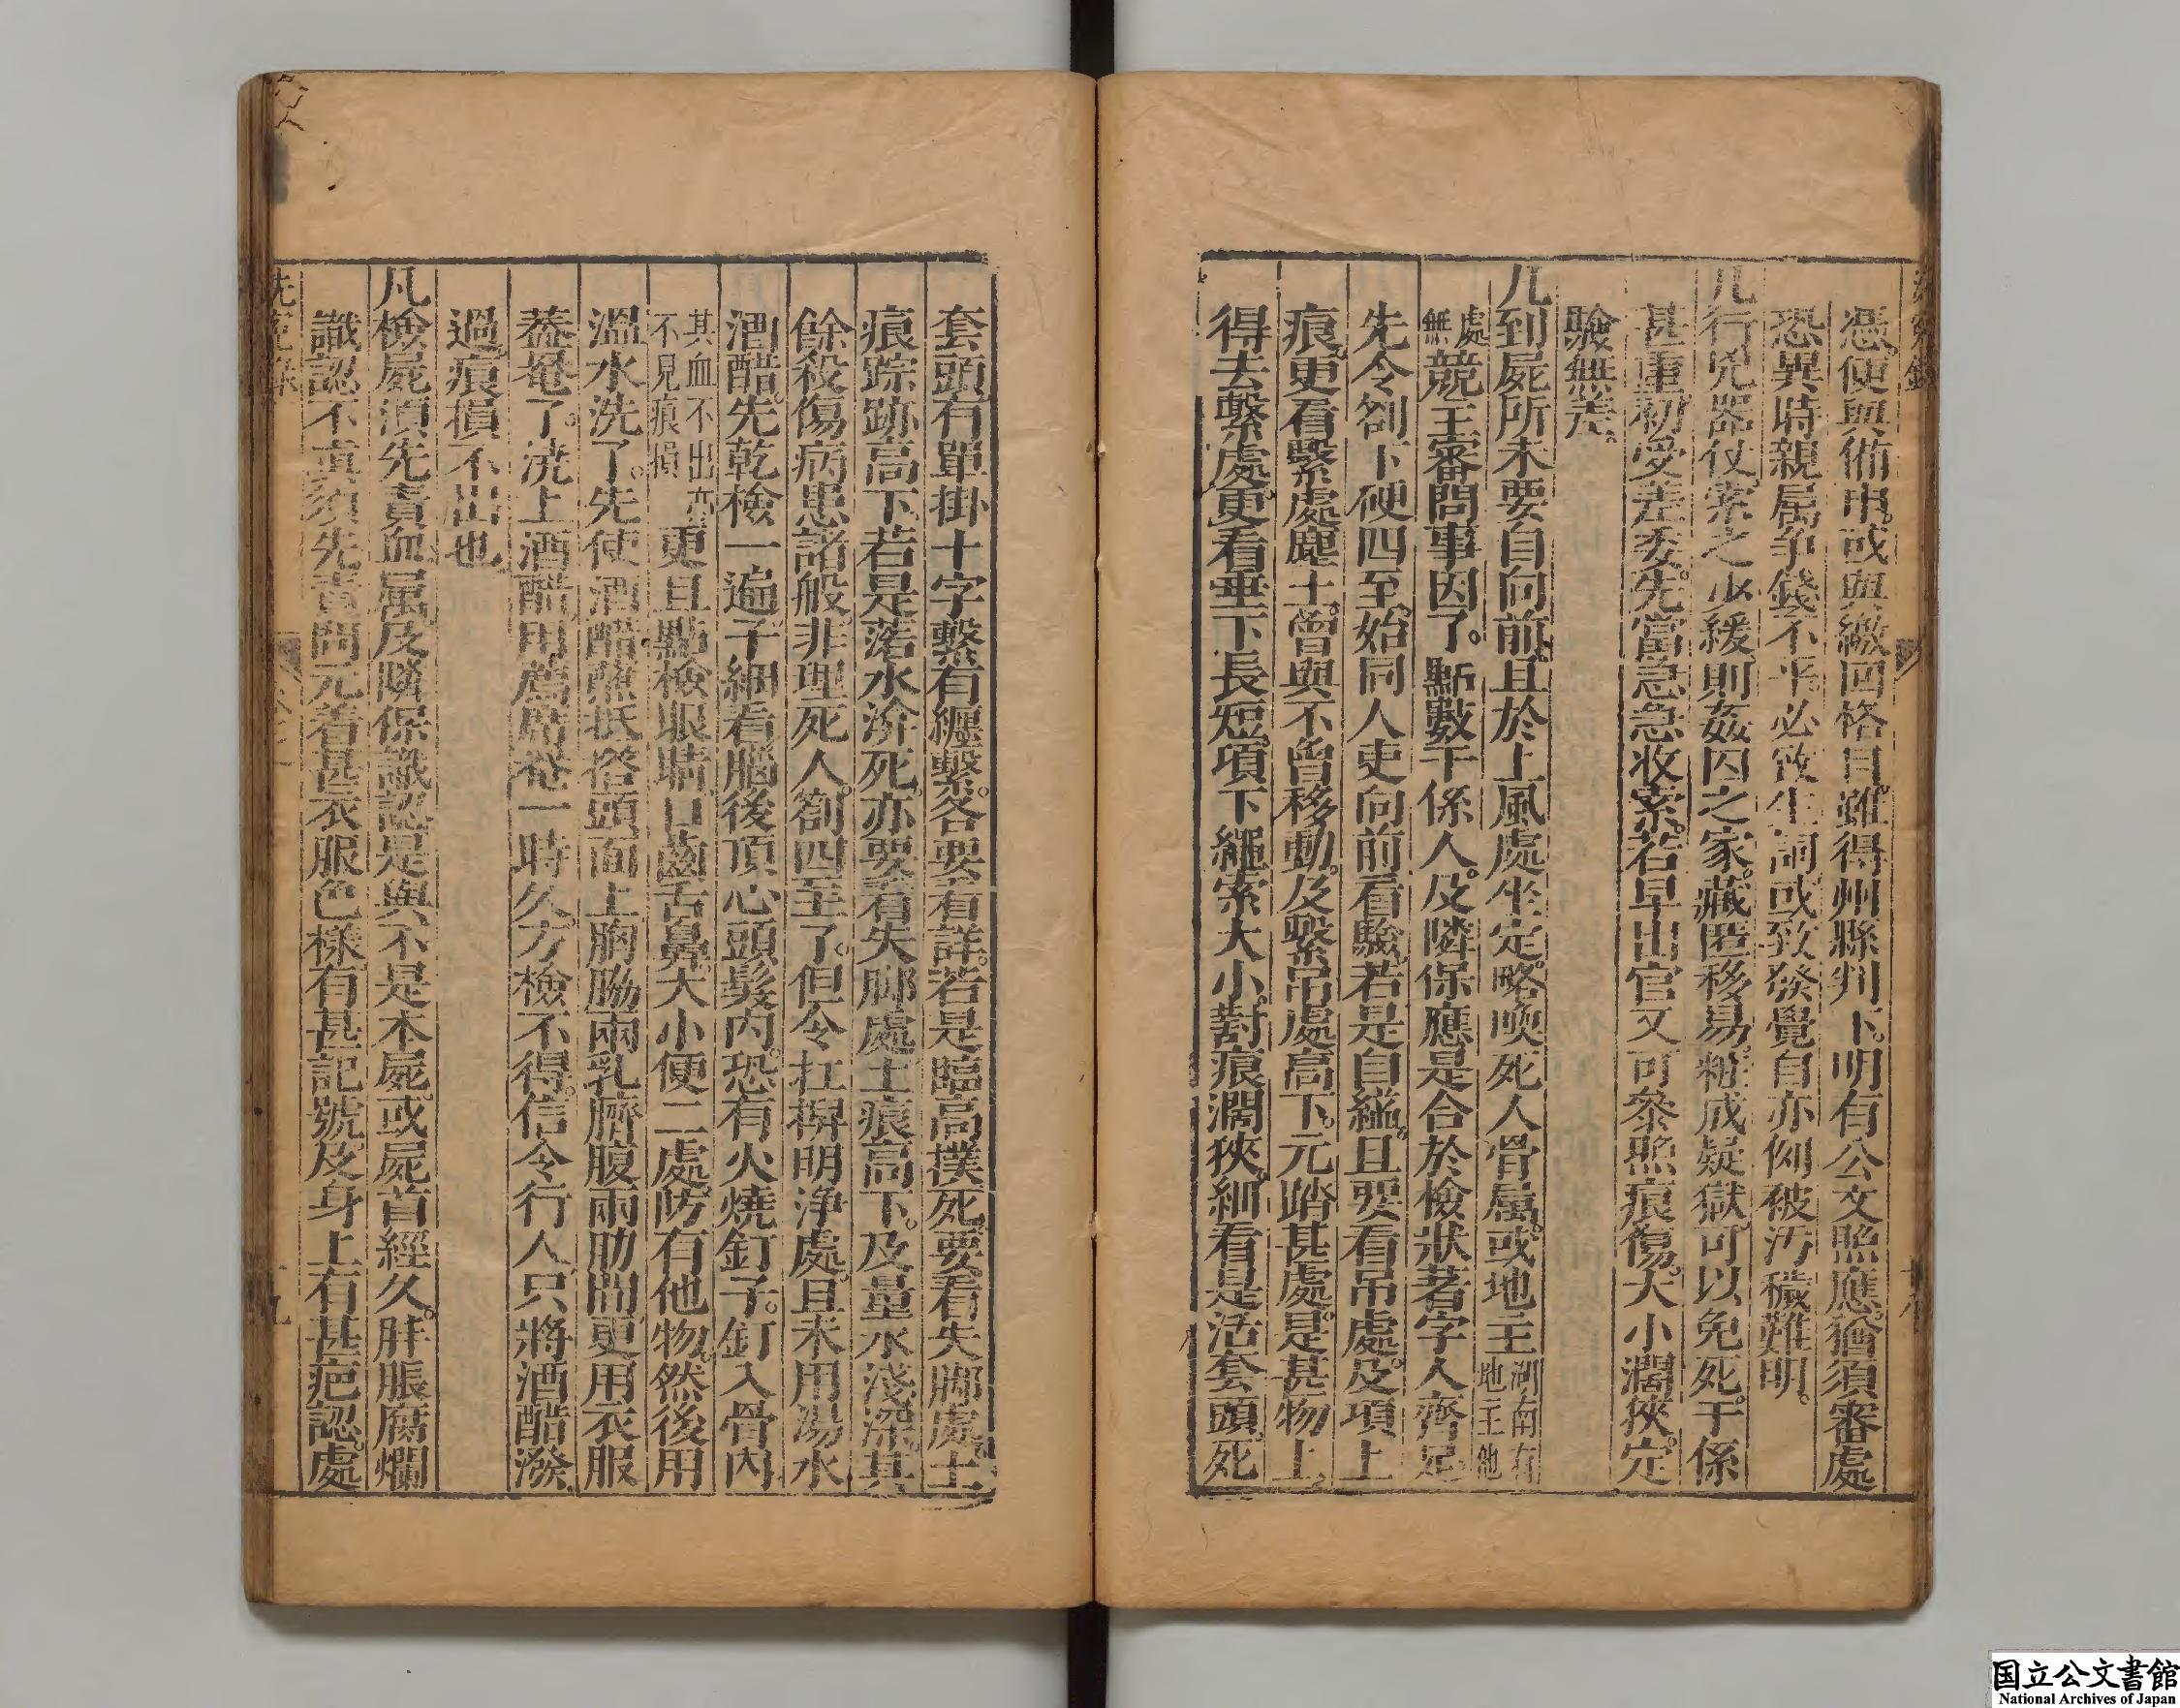 憑便與備申。或與繳回格目。雖得州縣判下。明有公文照應。猶須審處
恐異時親属爭錢不平。必致生詞。或致發覺。自亦例被汚穢難明。
凡行兇器仗。索之少緩。則姦囚之家。藏匿移易。粧成疑獄。可以免死。干係
甚重。初受差委。先當急急收索。若早出官。又可參照痕傷。大小濶狹。定
驗無差。
凡到屍所。未要自向前。且於上風處坐定。略喚死人骨属。或地主湖南有地主他
處無競主審問事因了。點數干係人。及隣保應是合於檢狀著字人齊足。
先令劄下硬四至。始同人吏向前看驗。若是自縊。且要看吊處。及項上
痕。更看繫處塵土。曾與不曾移動。及繫吊處高下。元踏甚處。是甚物上。
得去繫處。更看垂下長短。項下繩索大小。對痕濶狹。細看是活套頭。死
套頭。有單掛十字繫。有纏繫。各要看詳。若是臨高撲死。要看失脚處土
痕踪跡高下。若是落水渰死。亦要看失脚處土痕高下。及量水淺深。其
餘殺傷病患諸般。非理死人。劄四至了。但令扛舁明淨處。且未用湯水
酒醋。先乾檢一遍。子細看腦後頂心頭髮內。恐有火燒釘子。釘入骨內
其血不出亦不見痕損更且點檢眼睛口齒舌鼻。大小便二處。防有他物。然後用
溫水洗了。先使酒醋蘸紙。搭頭面上胸脇兩乳臍腹兩肋間。更用衣服
蓋罨了。澆上酒醋。用薦席罨一時久。方檢不得。信令行人。只將酒醋潑
過。痕損不出也。
凡檢屍須先責血属及隣保。識認是與不是本屍。或屍首經久。胖脹腐爛
識認不真。須先責問元着甚衣服色様。有甚記號。及身上有甚疤認處
洗冤錄
国立公文書館
National Archives of Japan